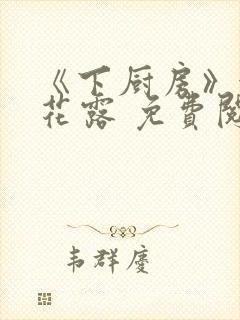 《下厨房》
花露 免費閱
韦群慶